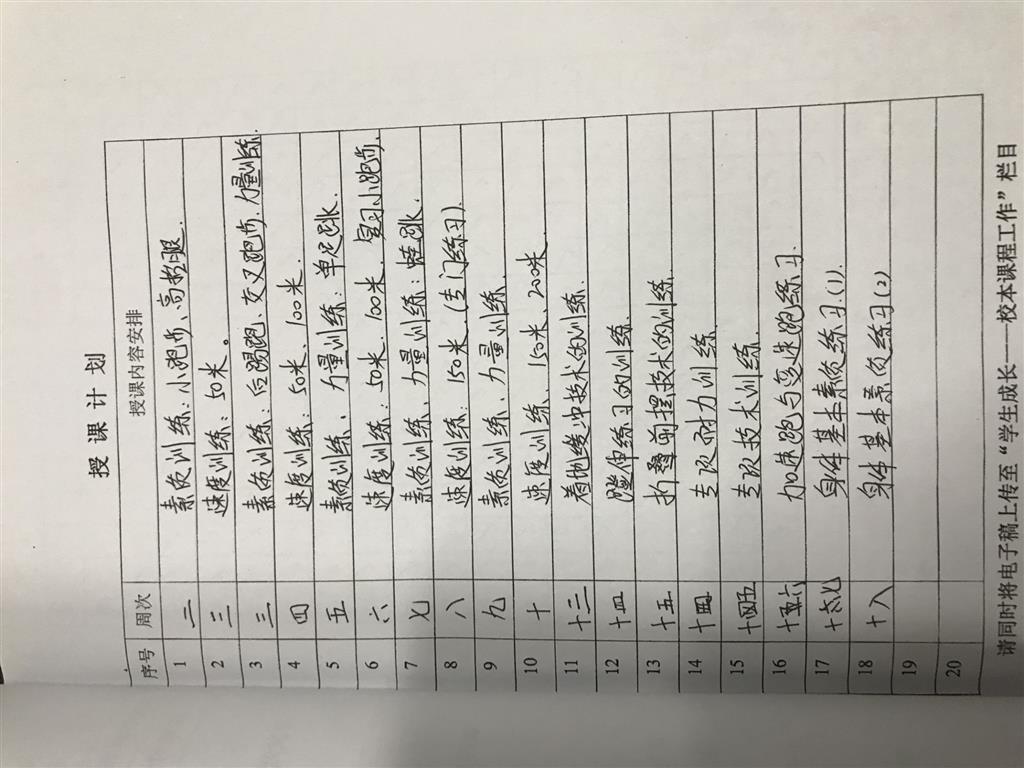 授课计划
序号 周次 授课内容安排
1 二 素质训练:小跑步、高抬腿.
2 三 速度训练:50米。
3 三 素质训练:后踢跑、交叉跑步.力量训练.
4 四 速度训练:50米、100米.
5 五 素质训练、力量训练:单足跳.
6 六 速度训练:50米.100米.复习小跑步.
7 七 素质训练、力量训练:蛙跳.
8 八 速度训练:150米.(专门练习).
9 九 素质训练、力量训练.
10 十 速度训练、150米、200米.
11 十三 着地缓冲技术的训练.
12 十四 蹬伸练习的训练.
13 十五 折叠前摆技术的训练.
14 十四 专项耐力训练.
15 十五 专项技术训练.
16 十六 加速跑与变速跑练习.
17 十七 身体基本素质练习.(1).
18 十八 身体基本素质练习(2)
19
20
请同时将电子稿上传至“学生成长——校本课程工作”栏目